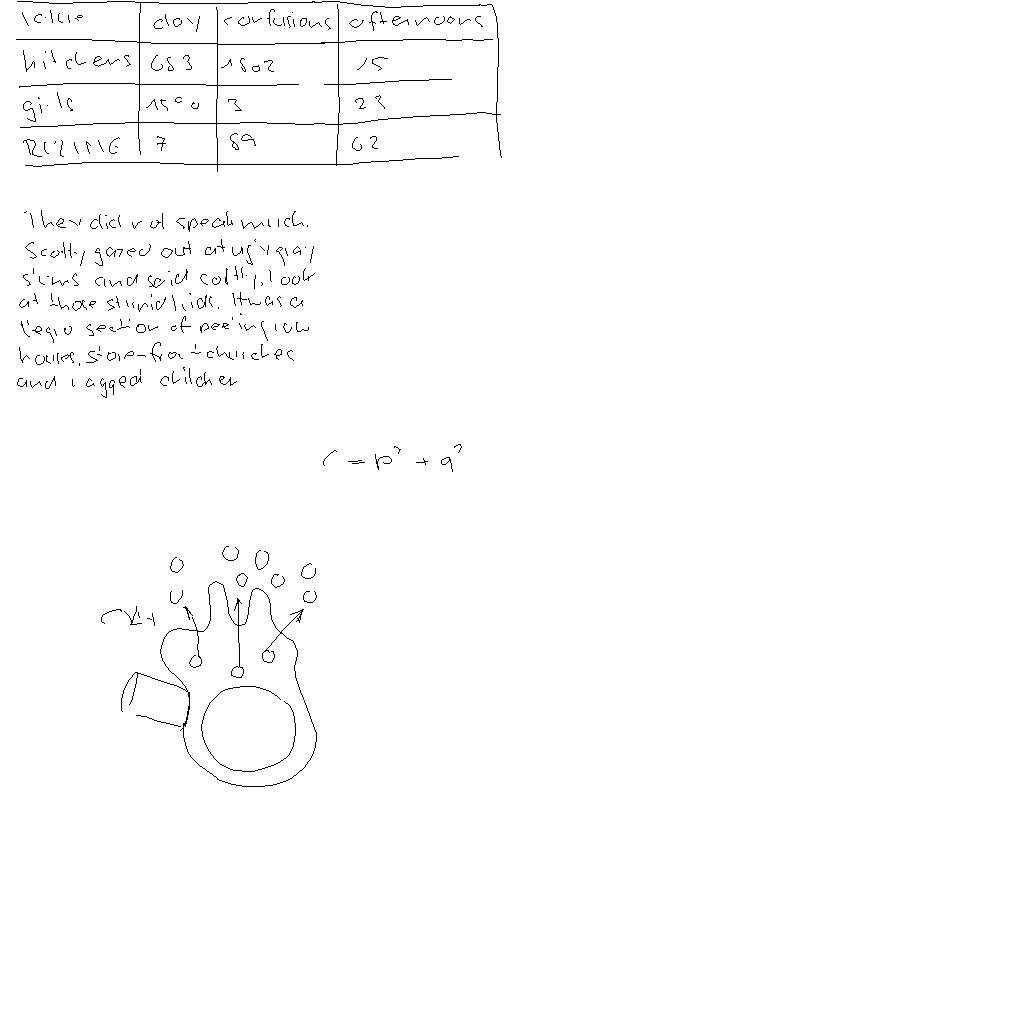 clay confusions afternoons
kitchens 683 1802 15
girls 1590 3 23
7 89 62
They did not speak much.
Scotty gazed out at ugly gray
slums and said softly, look
at those stupid kids. It was a
Negro section of peeling row
houses, store-front churches
and ragged children
r = p² + q²